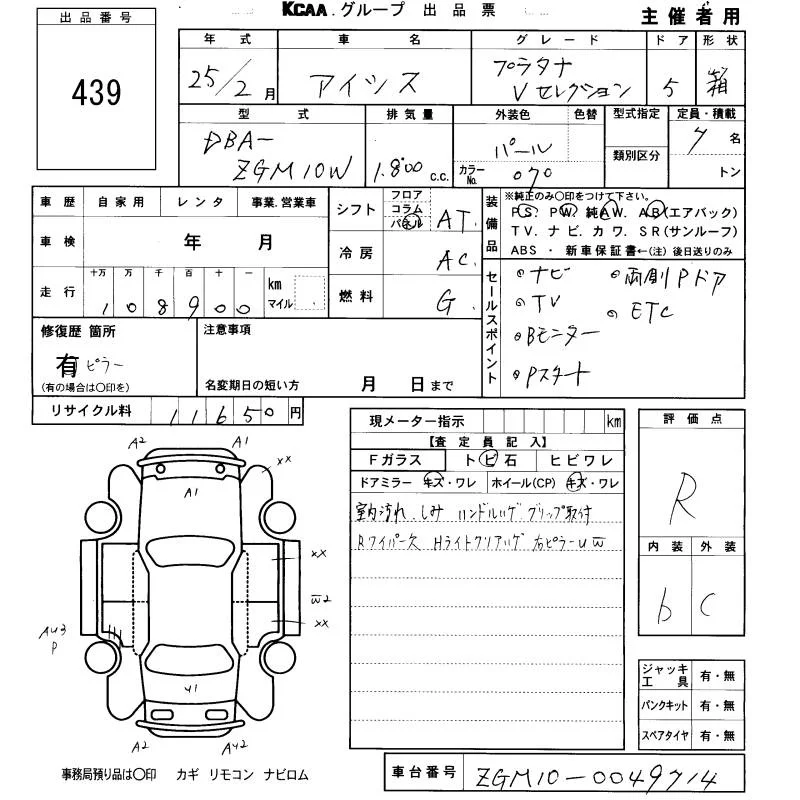 KCAA.グループ 出品票
主催者用
出品番号
439
年式 車名 グレード ドア 形状
25/2月 アイシス プラタナ Vセレクション 5 箱
型式 排気量 外装色 色替 型式指定 定員・積載
DBA- ZGM10W 1.800 c.c. パール 7名
カラーNo. 070 類別区分 トン
車歴 自家用 レンタ 事業.営業車
シフト フロア コラム パネル AT
装備品
※純正のみ○印をつけて下さい。
PS. PW. 純AW. AB(エアバック)
TV. ナビ. カワ. SR(サンルーフ)
ABS ・ 新車保証書←(注) 後日送りのみ
車検 年 月
冷房 AC
走行 十万 万 千 百 十 一
108900 km マイル
燃料 G
セールスポイント
ナビ 両側Pドア
TV ETC
Bモニター
Pスタート
修復歴 箇所
有 ピラー
(有の場合は○印を)
注意事項
名変期日の短い方 月 日まで
リサイクル料 11650円
現メーター指示 km
【査定員記入】
Fガラス トビ石 ヒビワレ
ドアミラー キズ・ワレ ホイール(CP) キズ・ワレ
室内汚れ.しみ ハンドルハゲ グリップ取付
Rワイパー欠 Hライトクリアハゲ 右ピラーUW
評価点
R
内装 外装
b C
A2 A1
XX
A1
XX
W2
XX
AU3
P
U1
A2 AU2
ジャッキ工具 有・無
パンクキット 有・無
スペアタイヤ 有・無
事務局預り品は○印 カギ リモコン ナビロム
車台番号 ZGM10-0049714